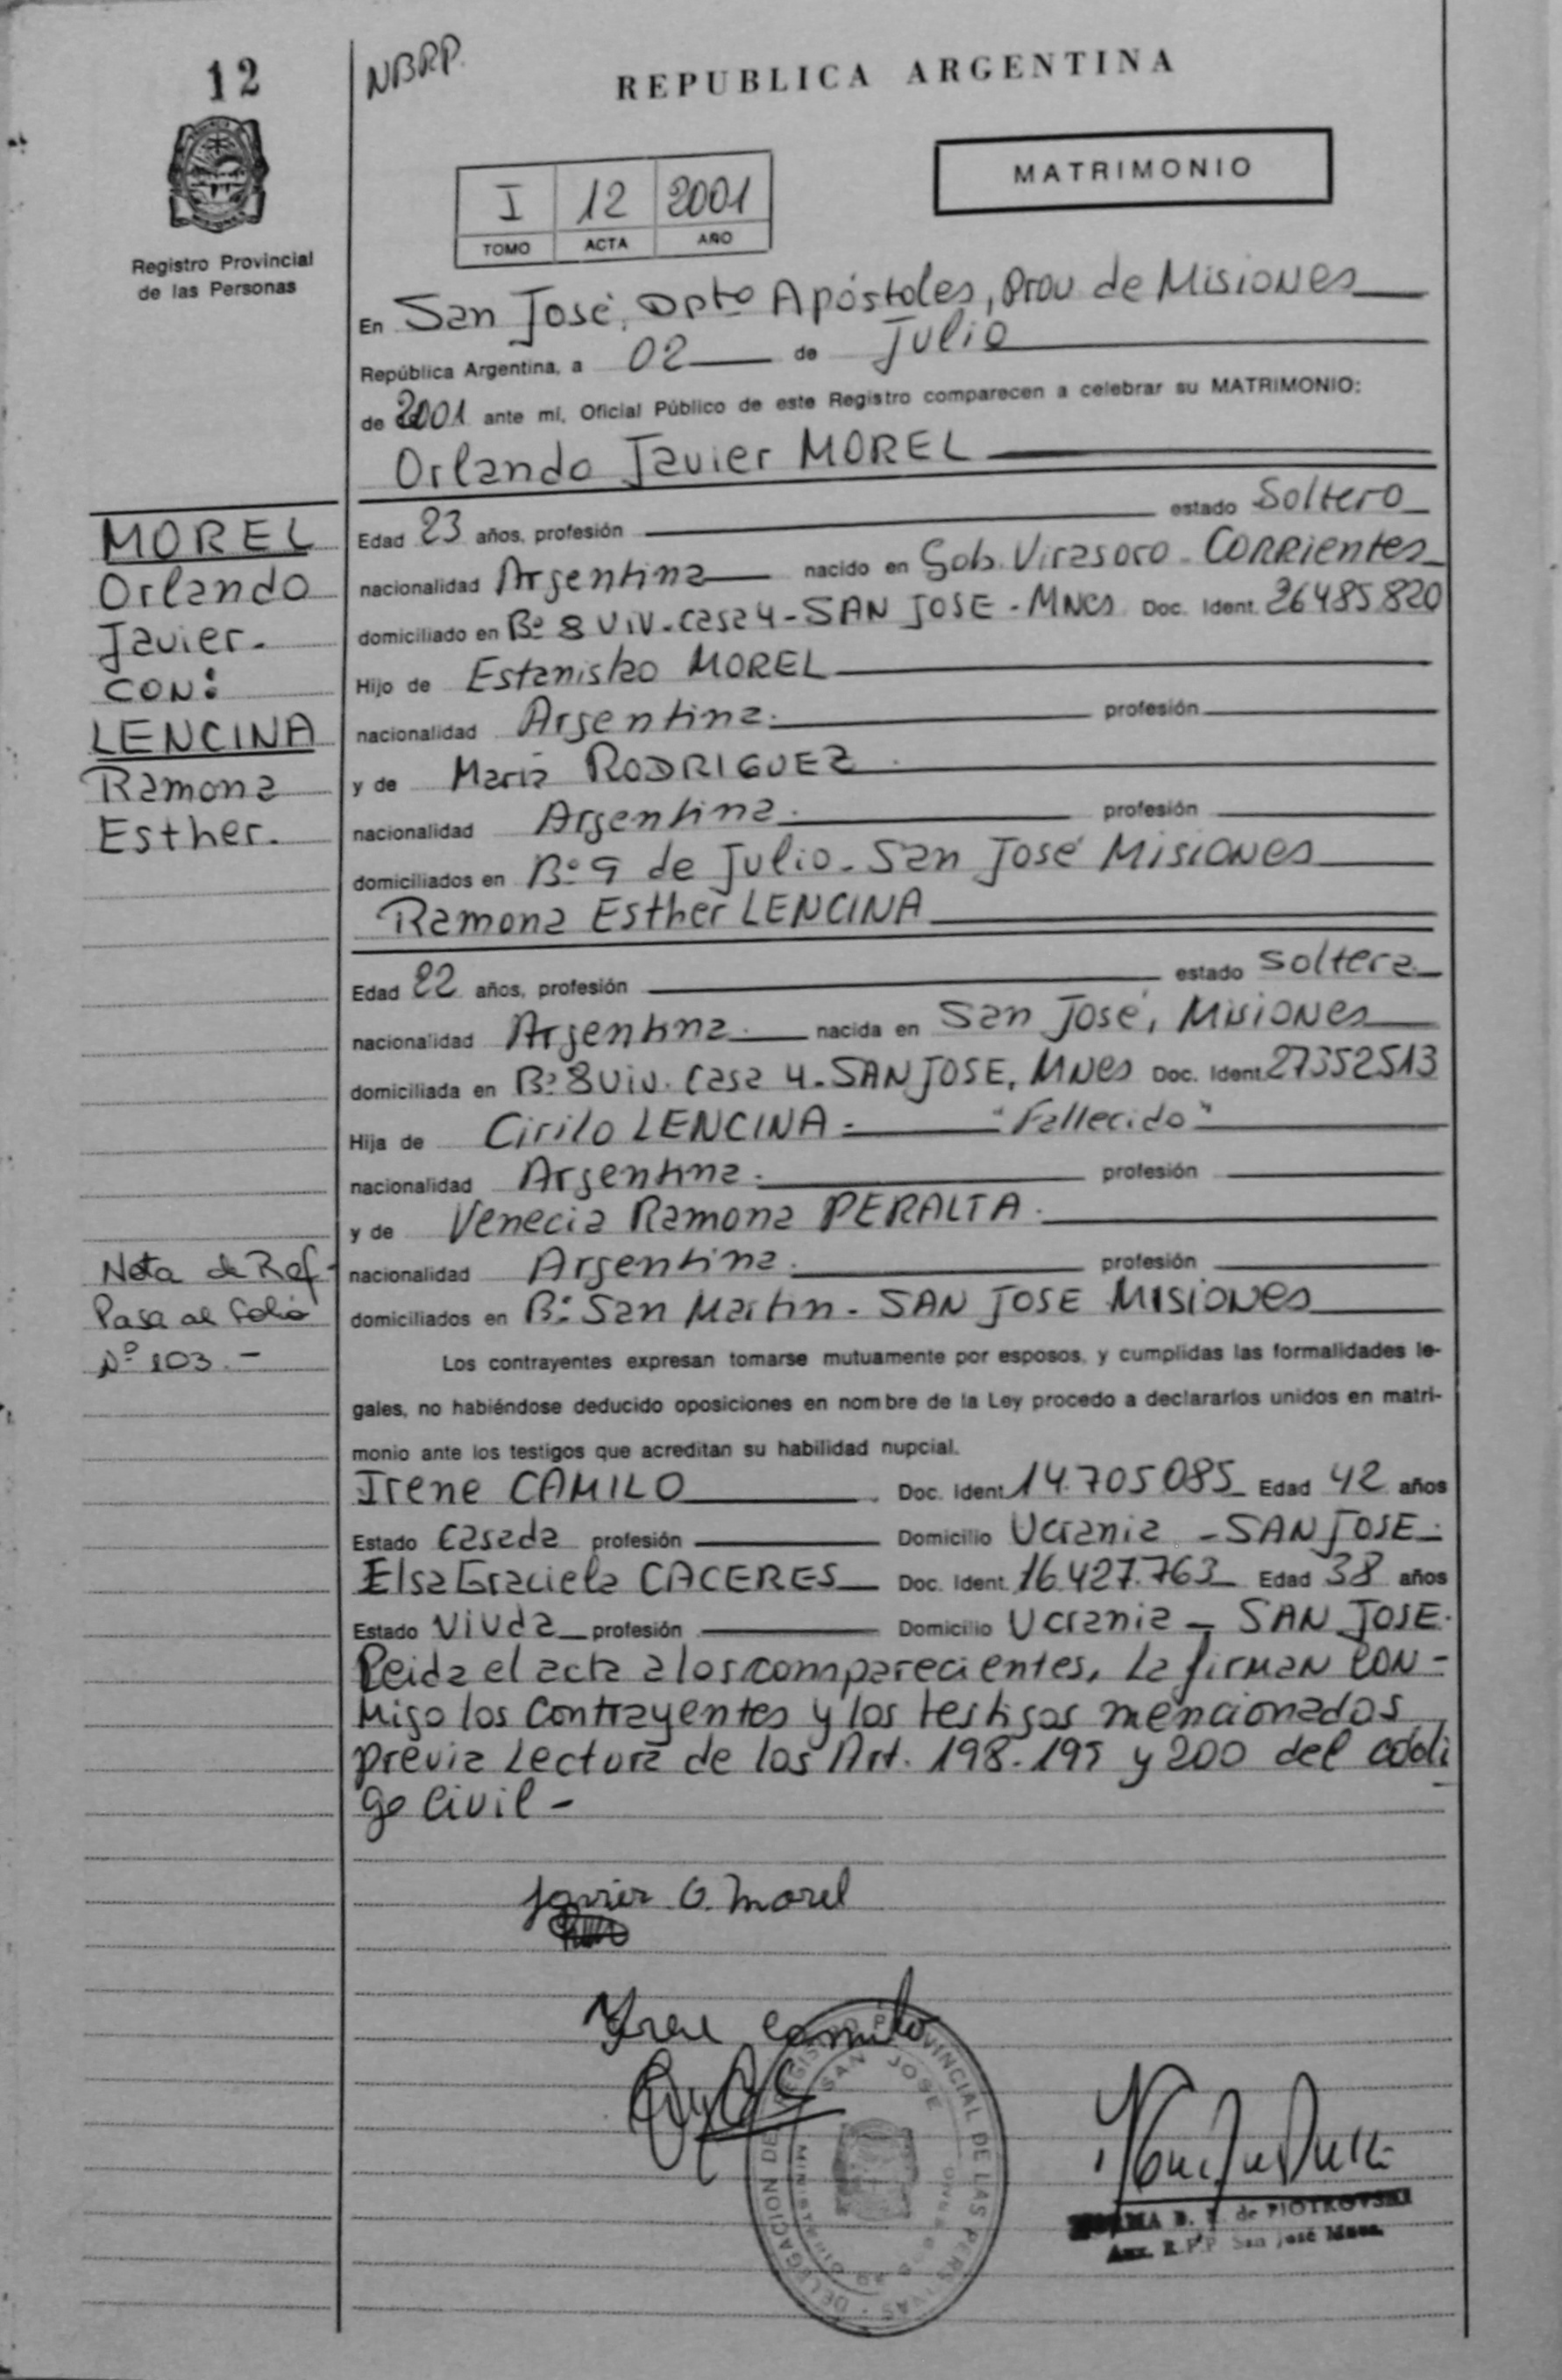 12
NBRP.
REPUBLICA ARGENTINA
MATRIMONIO
I 12 2001
TOMO ACTA AÑO
Registro Provincial
de las Personas
En San José, Dpto Apóstoles, Prov de Misiones
República Argentina, a 02 de Julio
de 2001 ante mí, Oficial Público de este Registro comparecen a celebrar su MATRIMONIO:
Orlando Javier MOREL
MOREL
Orlando
Javier.
CON:
LENCINA
Ramona
Esther.
Edad 23 años, profesión estado Soltero
nacionalidad Argentina nacido en Gob. Virasoro - CORRientes
domiciliado en Bº 8 Viv. Casa 4 - SAN JOSE - Mnes Doc. Ident. 26485.820
Hijo de Estanislao MOREL
nacionalidad Argentina. profesión
y de María RODRIGUEZ
nacionalidad Argentina. profesión
domiciliados en Bº 9 de Julio - San José Misiones
Ramona Esther LENCINA
Edad 22 años, profesión estado Soltera
nacionalidad Argentina. nacida en San José, Misiones
domiciliada en Bº 8 Viv. Casa 4 - SAN JOSE, Mnes Doc. Ident 27352513
Hija de Cirilo LENCINA. "Fallecido"
nacionalidad Argentina. profesión
y de Venecia Ramona PERALTA.
nacionalidad Argentina. profesión
domiciliados en Bº San Martin - SAN JOSE MISIONES
Nota de Ref.
Pasa al folio
Nº 103. -
Los contrayentes expresan tomarse mutuamente por esposos, y cumplidas las formalidades le-
gales, no habiéndose deducido oposiciones en nombre de la Ley procedo a declararlos unidos en matri-
monio ante los testigos que acreditan su habilidad nupcial.
Irene CAMILO Doc. Ident 14.705085 Edad 42 años
Estado Casada profesión Domicilio Ucrania - SAN JOSE.
Elsa Graciela CACERES Doc. Ident. 16.427.763 Edad 38 años
Estado Viuda profesión Domicilio Ucrania - SAN JOSE.
Leida el acta a los comparecientes, la firman con-
migo los contrayentes y los testigos mencionados
previa Lectura de los Art. 198-199 y 200 del códi
go Civil -
Javier O. Morel
Yrene Camilo
DELEGACION DEL REGISTRO PROVINCIAL DE LAS PERSONAS
SAN JOSE
B. de PIOTROVSKI
Aux. R.P.P. San José Mnes.